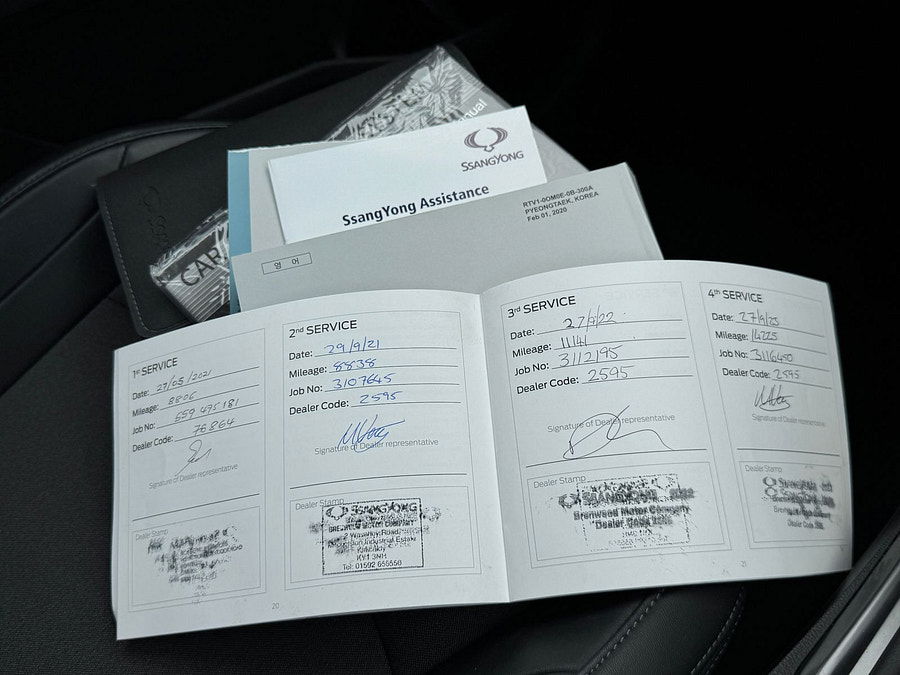 SSANGYONG
SsangYong Assistance
RTV1-0OM0E-0B-300A
PYEONGTAEK, KOREA
Feb 01, 2020
영 어
CAR
1st SERVICE
Date: 27/05/2021
Mileage: 8806
Job No: 559 475 181
Dealer Code: 76864
Signature of Dealer representative
Dealer Stamp
2nd SERVICE
Date: 29/9/21
Mileage: 8838
Job No: 3107645
Dealer Code: 2595
Signature of Dealer representative
Dealer Stamp
SSANGYONG
BRENWOOD MOTOR COMPANY
Industrial Estate
Kirkcaldy
KY1 3NH
Tel: 01592 655550
20
3rd SERVICE
Date: 27/9/22
Mileage: 11141
Job No: 3112195
Dealer Code: 2595
Signature of Dealer representative
Dealer Stamp
SSANGYONG
Brenwood Motor Company
Dealer Code 2595
4th SERVICE
Date: 27/9/23
Mileage: 14225
Job No: 3116450
Dealer Code: 2595
Signature of Dealer representative
Dealer Stamp
21